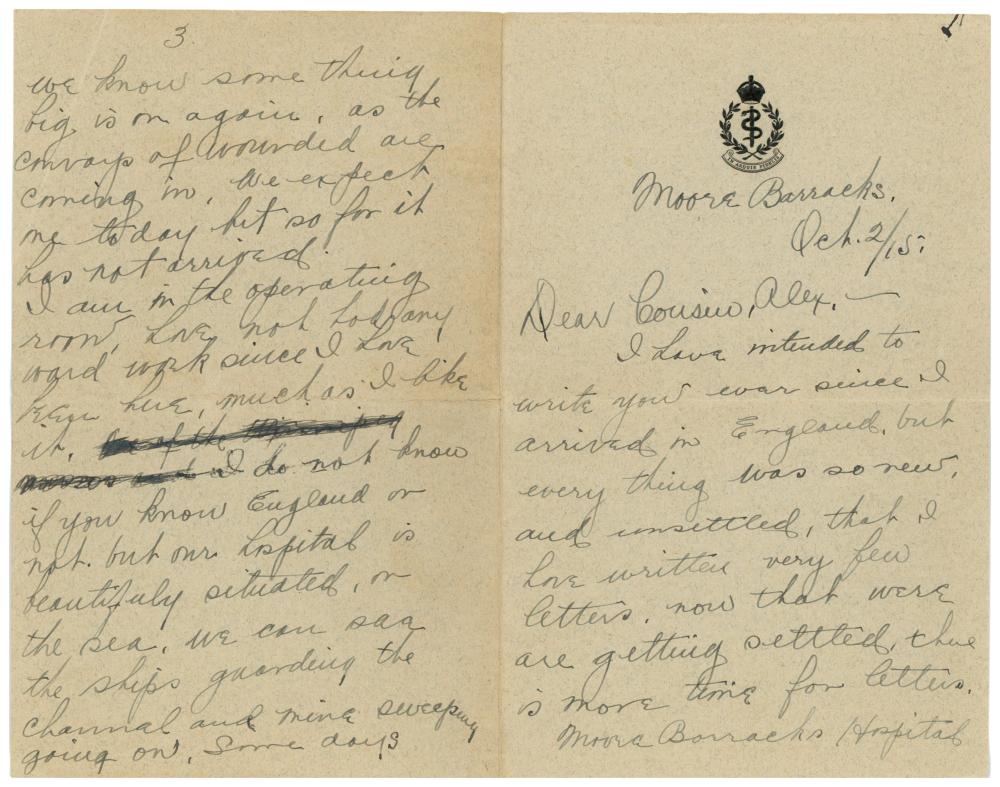 3.
we know some thing
big is on again, as the
convoys of wounded are
coming in, we expect
one today but so far it
has not arrived.
I am in the operating
room, have not had any
ward work since I have
been here, much as I like
it. One of the Winnipeg
nurses I do not know
if you know England or
not. but our hospital is
beautifuly situated, on
the sea, we can see
the ships guarding the
channal and mine sweeping
going on, Some days
IN ARDUIS FIDELIS
Moore Barracks.
Oct. 2/15.
Dear Cousin, Alex, —
I have intended to
write you ever since I
arrived in England, but
every thing was so new,
and unsettled, that I
have written very few
letters. now that were
are getting settled, there
is more time for letters.
Moore Barracks Hospital